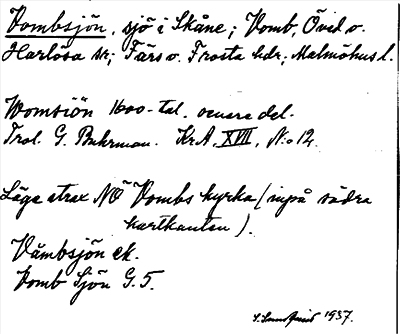 Vombsjön, sjö i Skåne; Vomb, Öved o.
Harlösa sr; Färs o. Frosta hdr; Malmöhus l.
Womsiön 1600-tal. senare del.
Trol. G. Buhrman. Kr.A. XVII, N:o 12.
Läge strax NÖ Vombs kyrka (inpå södra
kartkanten).
Vämbsjön ek.
Vomb Sjön G. 5.
1937.